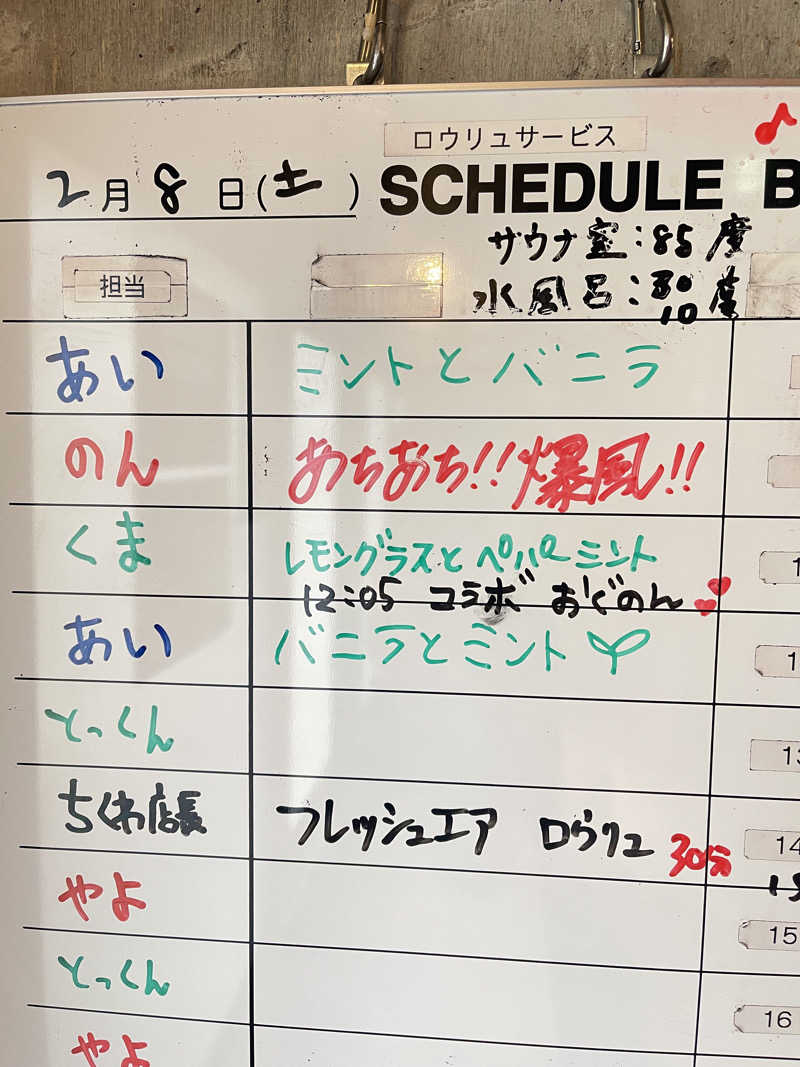 ロウリュサービス
2月8日(土) SCHEDULE B
サウナ室:85度
担当
水風呂:30
10度
あい ミントとバニラ
のん あちあち!!爆風!!
くま レモングラスとペパーミント
12:05 コラボ おぐのん
あい バニラとミント
とっくん
ちくわ店長 フレッシュエア ロウリュ 30分
14
やよ
15
とっくん
16
やよ